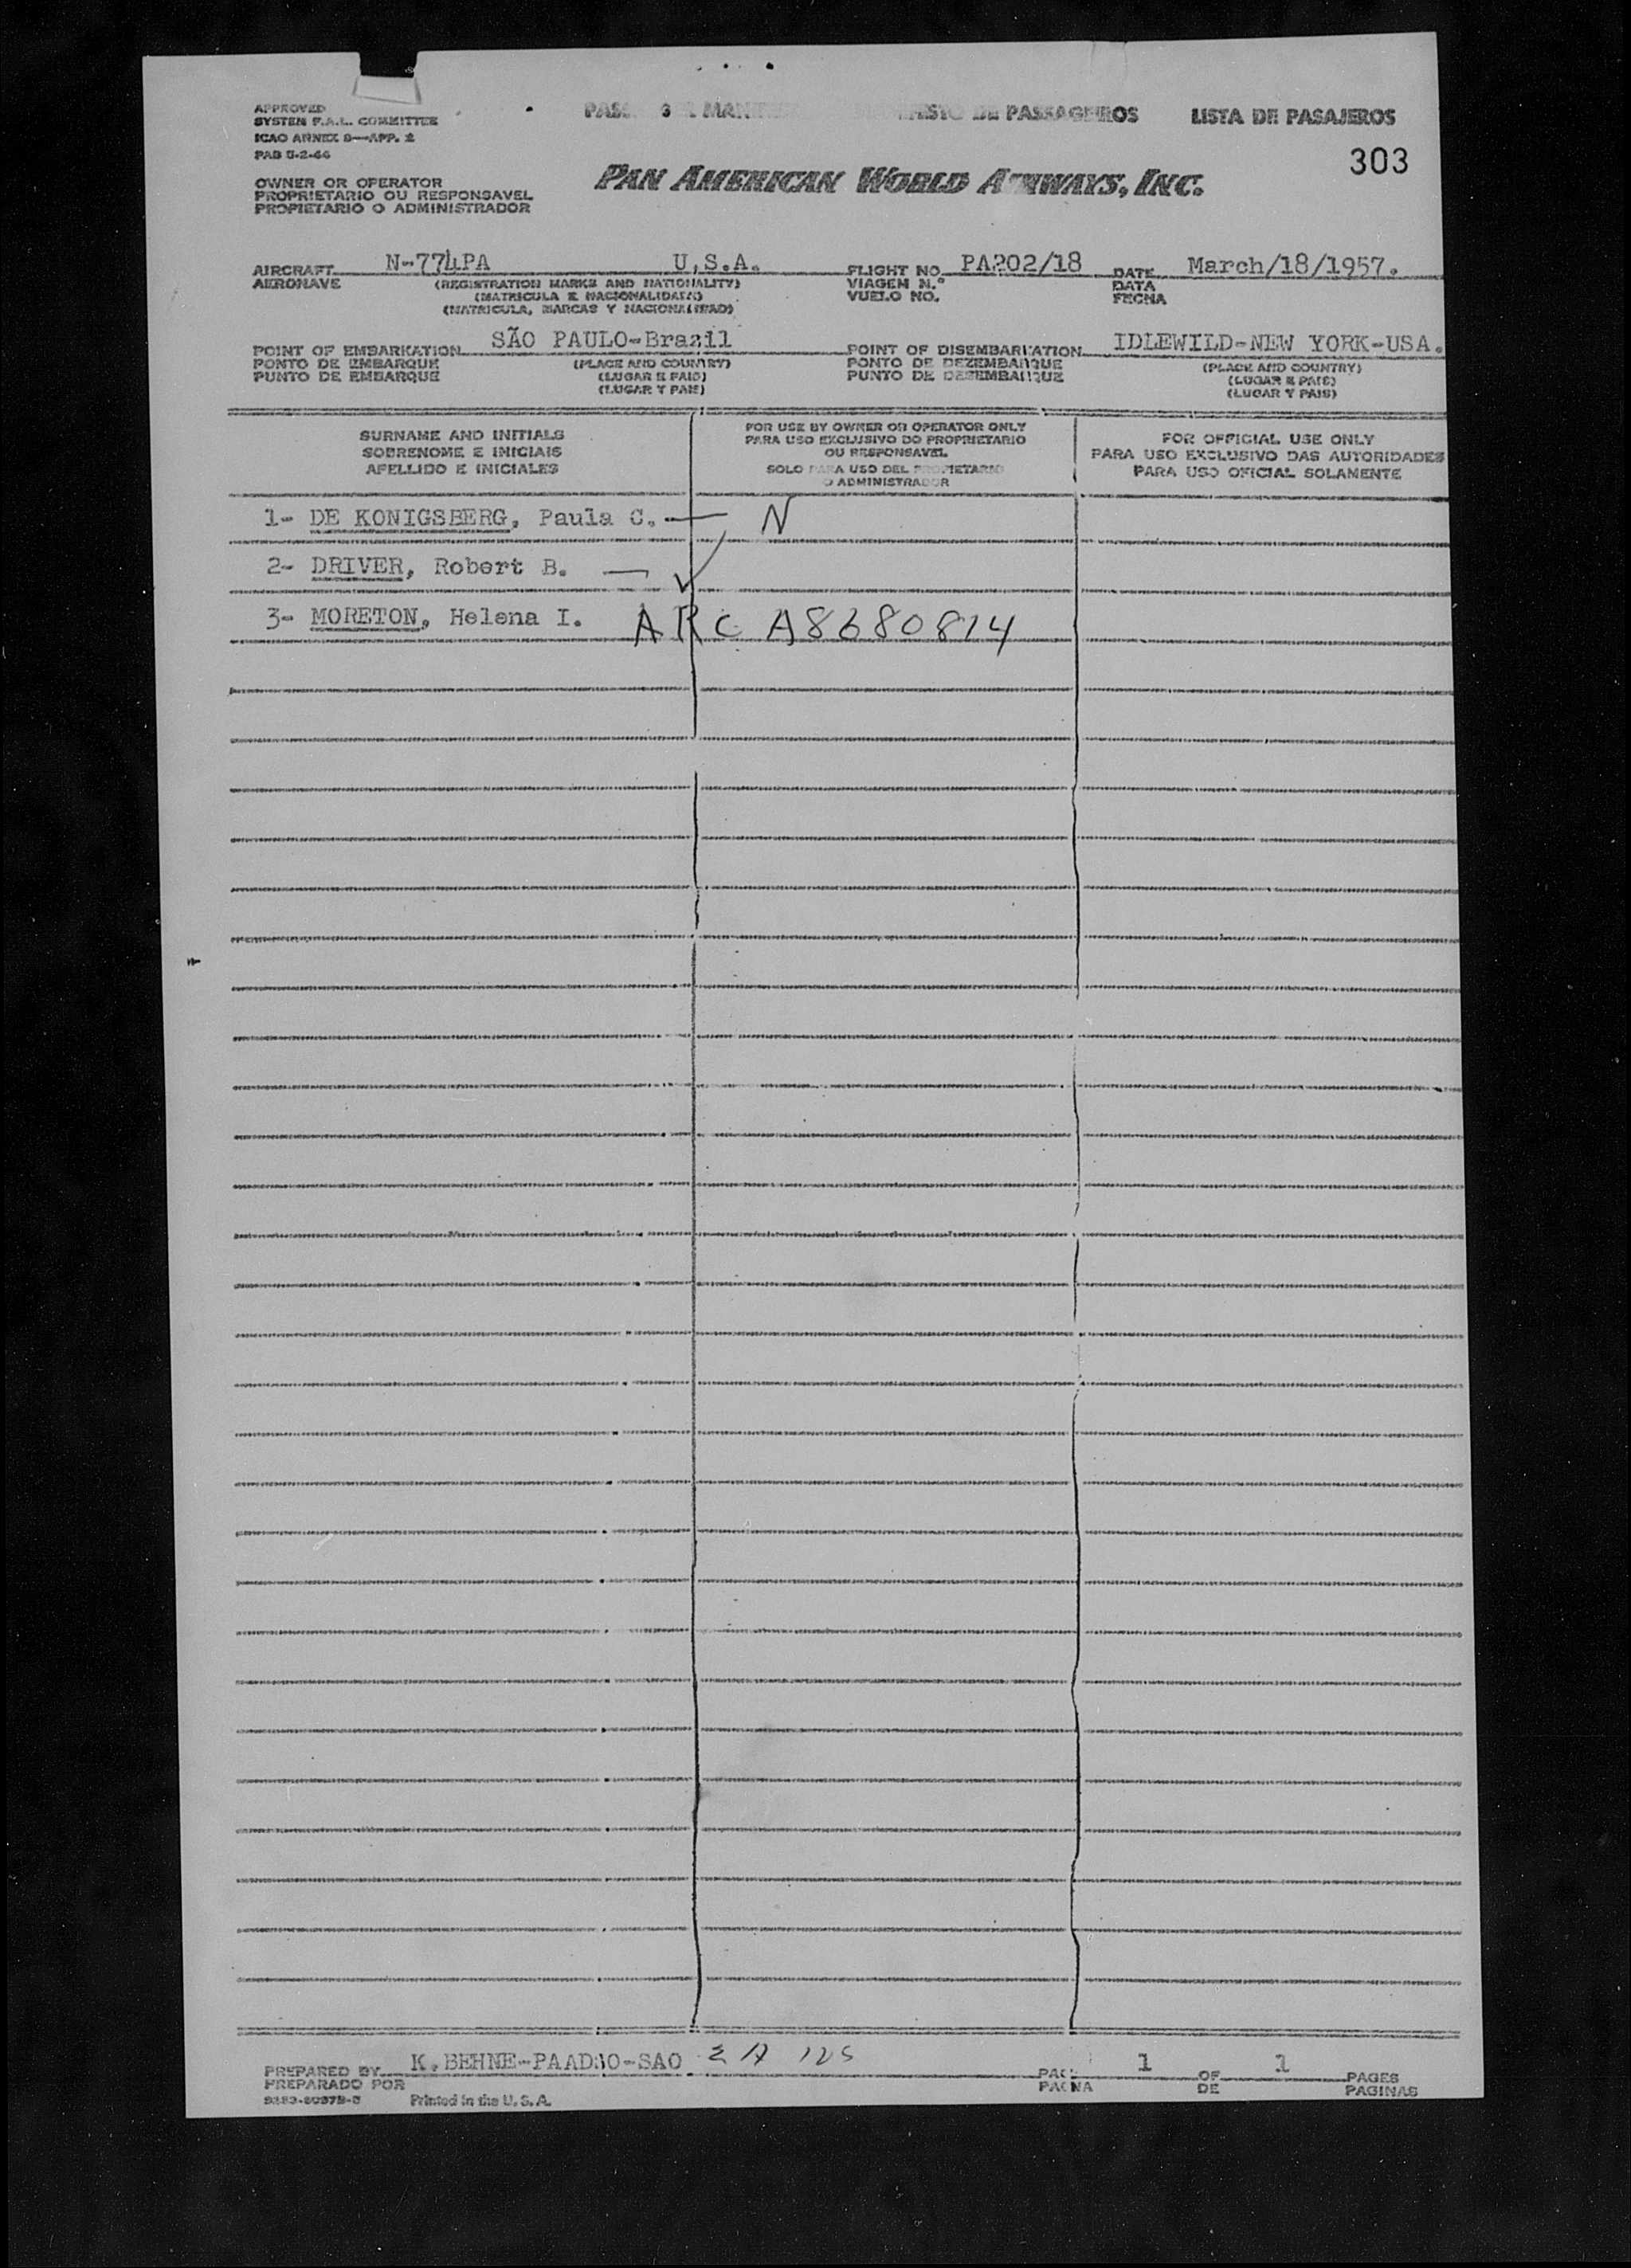 APPROVED
SYSTEM F.A.L. COMMITTEE
ICAO ANNEX 9—APP. 2
PAB
DE PASSAGEIROS
LISTA DE PASAJEROS
303
OWNER OR OPERATOR
PROPRIETARIO OU RESPONSAVEL
PROPIETARIO O ADMINISTRADOR
PAN AMERICAN WORLD AIRWAYS, INC.
AIRCRAFT N-774PA U.S.A. FLIGHT NO. PA202/18 DATE March/18/1957.
AERONAVE (REGISTRATION MARKS AND NATIONALITY) VIAGEM N.º DATA
(MATRICULA E NACIONALIDADE) VUELO NO. FECHA
(MATRICULA, MARCAS Y NACIONALIDAD)
POINT OF EMBARKATION SÃO PAULO-Brazil POINT OF DISEMBARKATION IDLEWILD-NEW YORK-USA.
PONTO DE EMBARQUE (PLACE AND COUNTRY) PONTO DE DEZEMBARQUE (PLACE AND COUNTRY)
PUNTO DE EMBARQUE (LUGAR E PAIS) PUNTO DE DESEMBARQUE (LUGAR E PAIS)
(LUGAR Y PAIS) (LUGAR Y PAIS)
SURNAME AND INITIALS
SOBRENOME E INICIAIS
APELLIDO E INICIALES
FOR USE BY OWNER OR OPERATOR ONLY
PARA USO EXCLUSIVO DO PROPRIETARIO
OU RESPONSAVEL
SOLO PARA USO DEL PROPIETARIO
O ADMINISTRADOR
FOR OFFICIAL USE ONLY
PARA USO EXCLUSIVO DAS AUTORIDADES
PARA USO OFICIAL SOLAMENTE
1- DE KONIGSBERG, Paula C. — N
2- DRIVER, Robert B. — ✓
3- MORETON, Helena I. ARC A8680814
PREPARED BY K. BEHNE-PAADSO-SAO PAGE 1 OF 1 PAGES
PREPARADO POR PAGINA DE PAGINAS
Printed in the U.S.A.